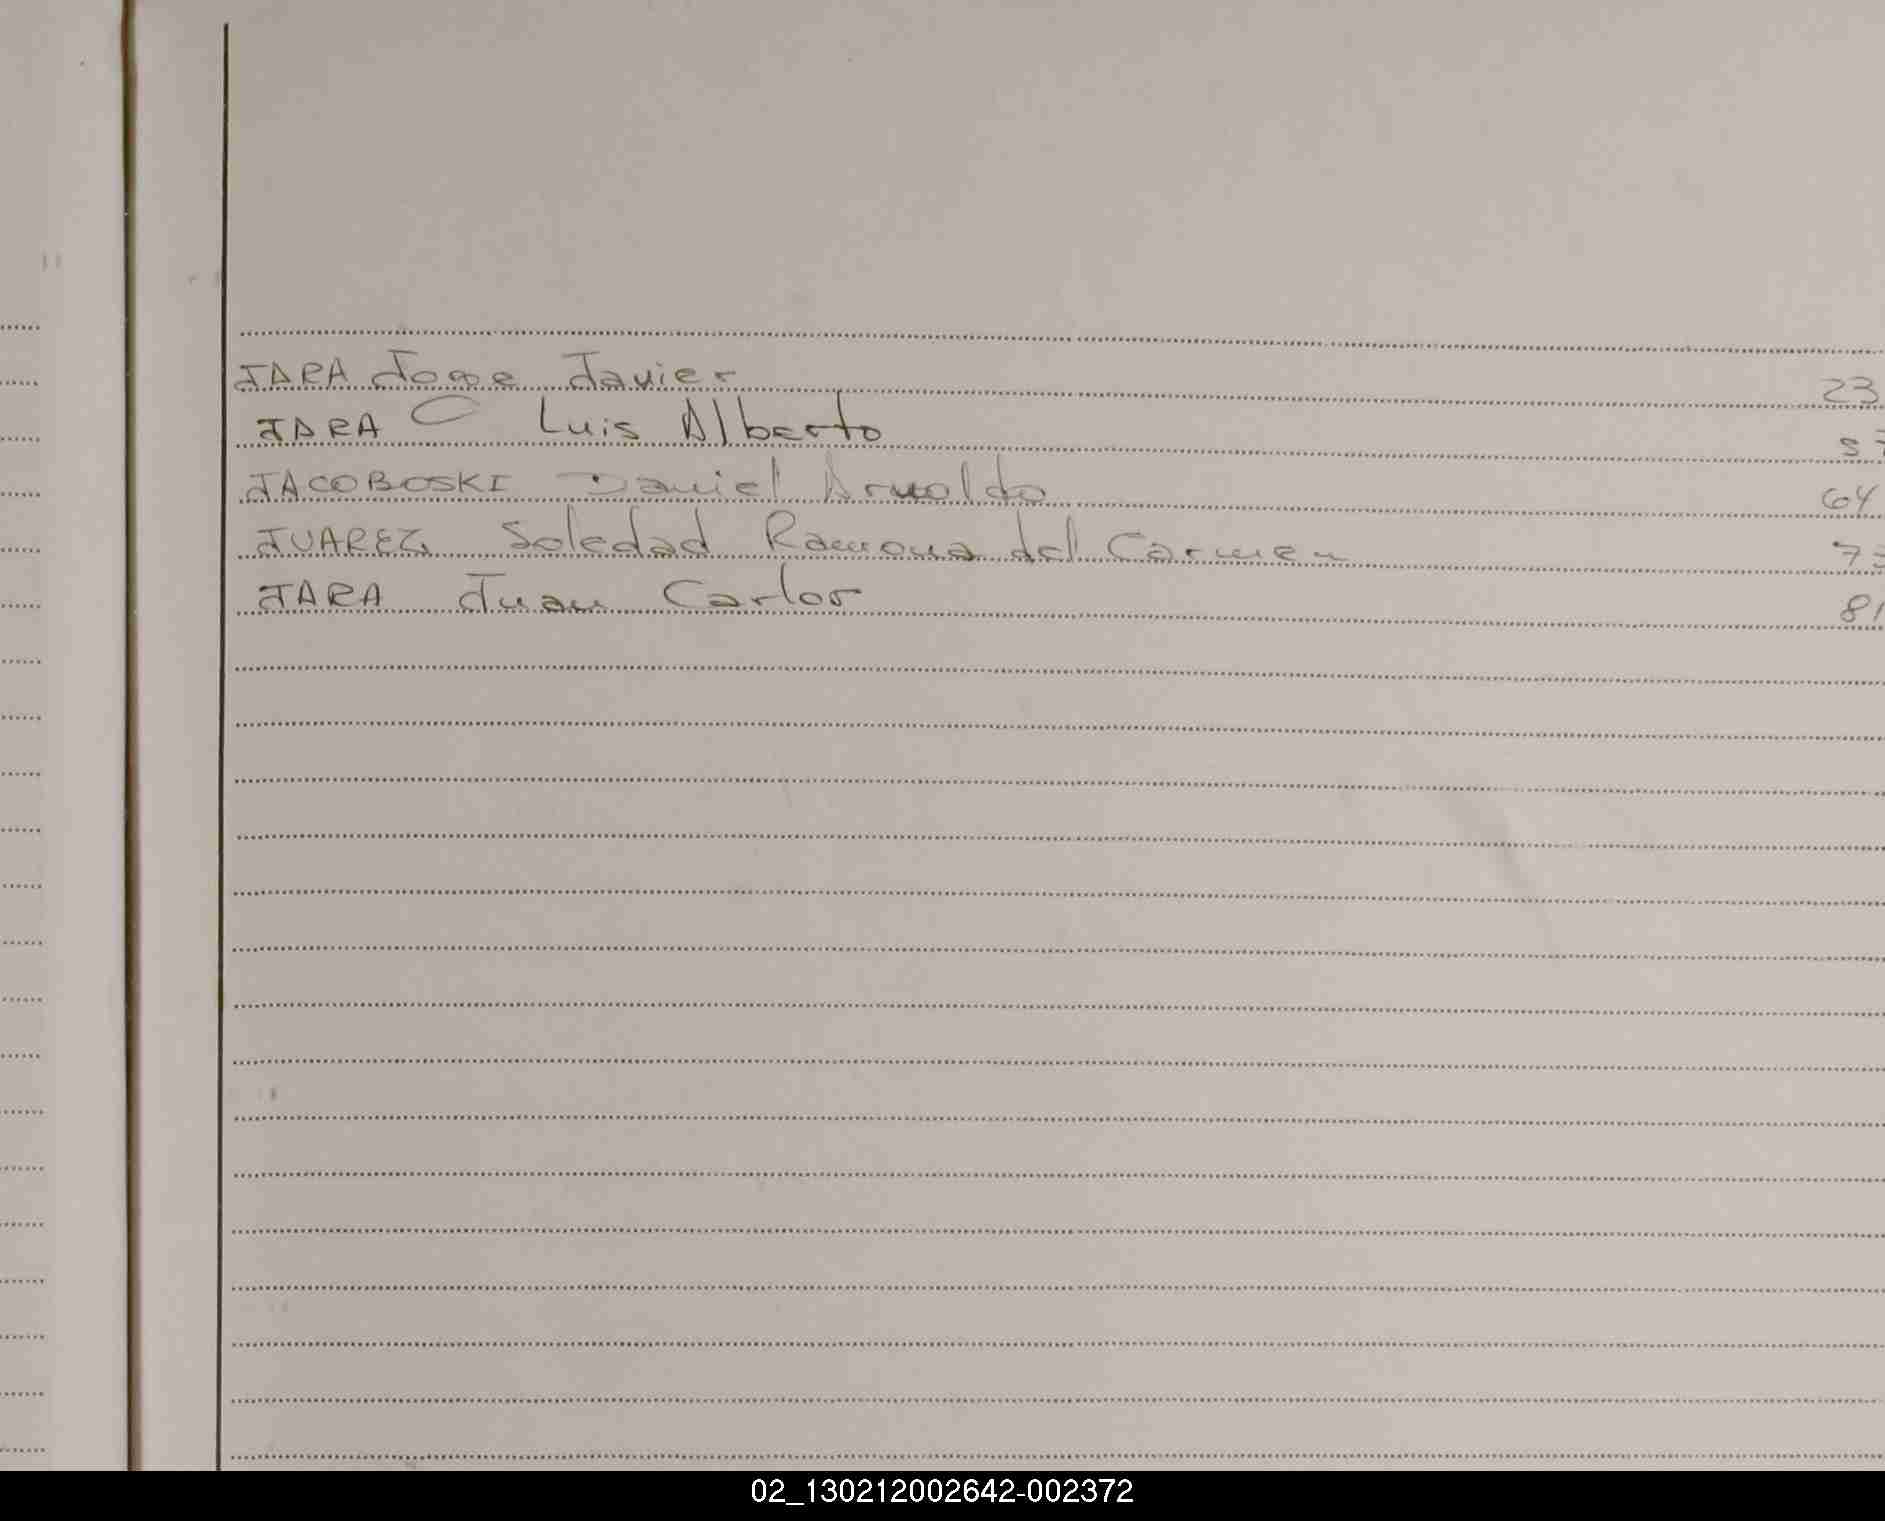 JARA Jose Javier 23
JARA Luis Alberto
JACOBOSKI Daniel Arnoldo 64
JUAREZ Soledad Ramona del Carmen
JARA Juan Carlos 81
02_130212002642-002372